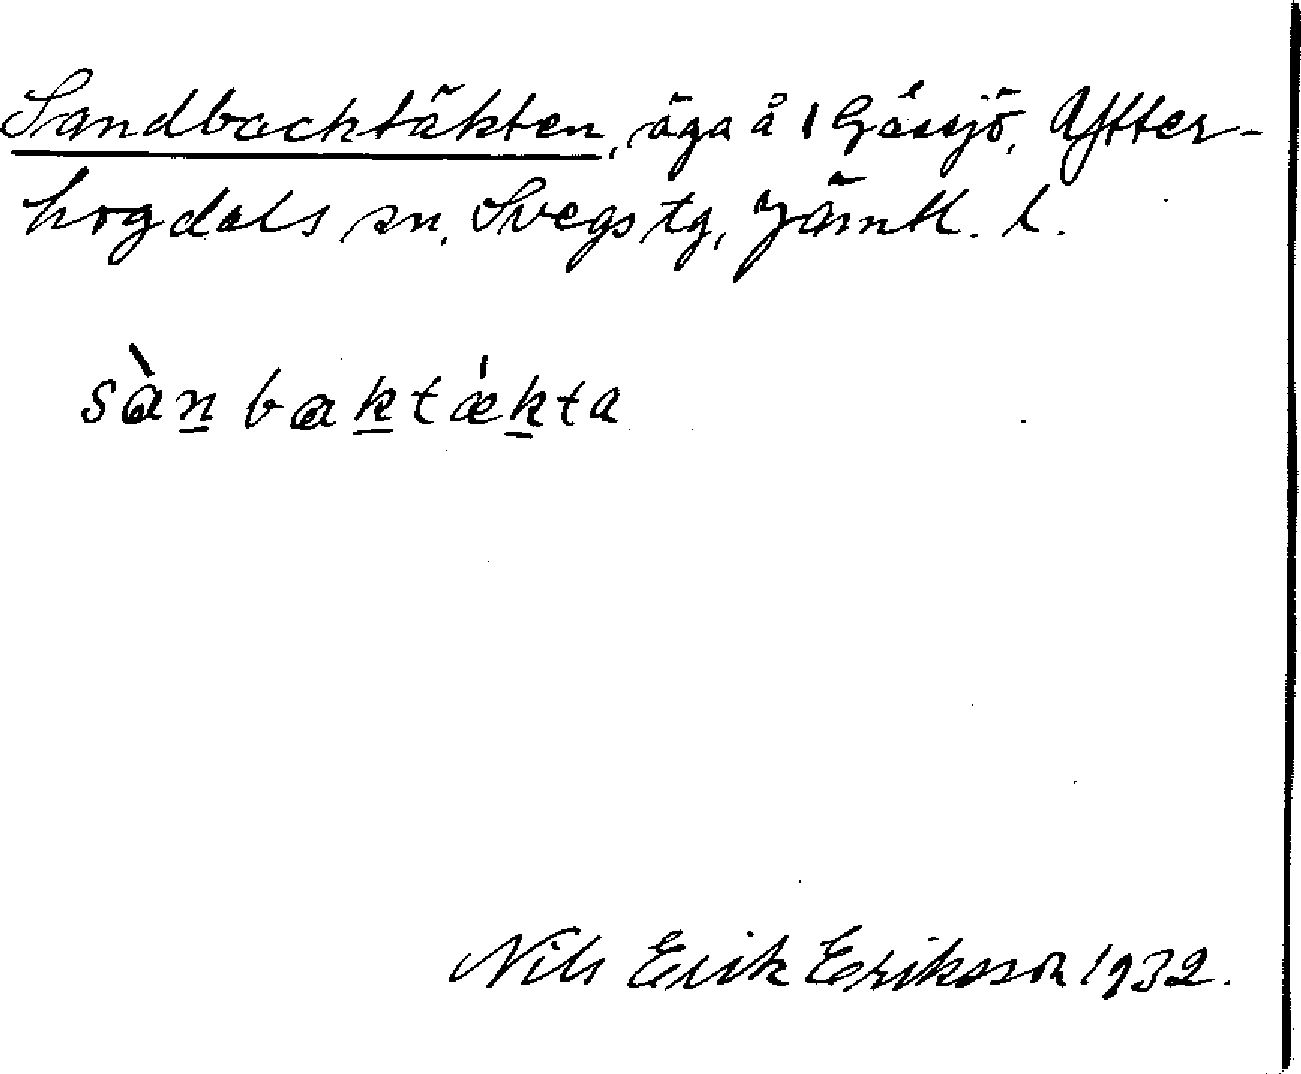 Sandbacktäkten, äga å 1 Gåssjö, Ytter-
hogdals sn, Svegs tg, Jämtl. l.
sànbaktǽkta
Nils Erik Eriksson 1932.